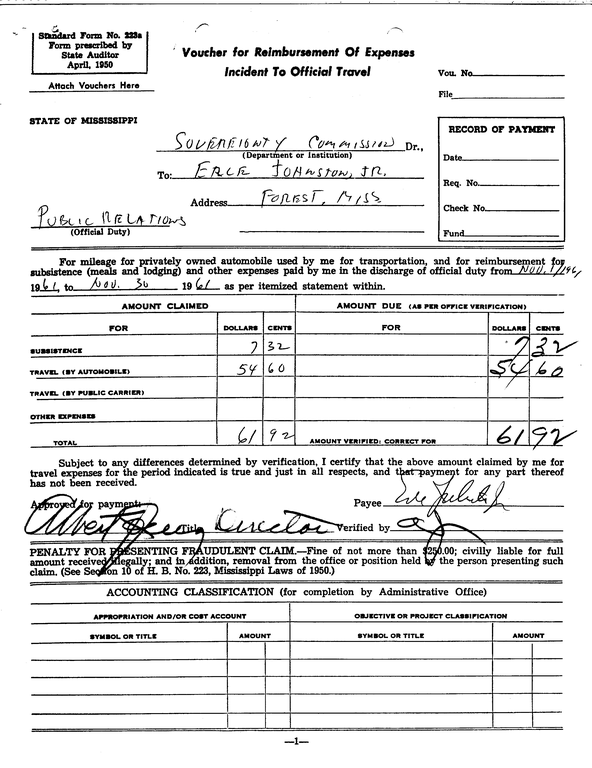 Standard Form No. 223a
Form prescribed by
State Auditor
April, 1950
Attach Vouchers Here
Voucher for Reimbursement Of Expenses
Incident To Official Travel
Vou. No.
File
STATE OF MISSISSIPPI
SOVEREIGNTY COMMISSION Dr.,
(Department or Institution)
To: ERLE JOHNSTON, JR.
Address FOREST, MISS
PUBLIC RELATIONS
(Official Duty)
RECORD OF PAYMENT
Date
Req. No.
Check No.
Fund
For mileage for privately owned automobile used by me for transportation, and for reimbursement for
subsistence (meals and lodging) and other expenses paid by me in the discharge of official duty from NOV. 1
1961, to NOV. 30 1961 as per itemized statement within.
AMOUNT CLAIMED AMOUNT DUE (AS PER OFFICE VERIFICATION)
FOR DOLLARS CENTS FOR DOLLARS CENTS
SUBSISTENCE 7 32 7 32
TRAVEL (BY AUTOMOBILE) 54 60 54 60
TRAVEL (BY PUBLIC CARRIER)
OTHER EXPENSES
TOTAL 61 92 AMOUNT VERIFIED: CORRECT FOR 61 92
Subject to any differences determined by verification, I certify that the above amount claimed by me for
travel expenses for the period indicated is true and just in all respects, and that payment for any part thereof
has not been received.
Approved for payment: Payee
Albert Title Director Verified by
PENALTY FOR PRESENTING FRAUDULENT CLAIM.—Fine of not more than $250.00; civilly liable for full
amount received illegally; and in addition, removal from the office or position held by the person presenting such
claim. (See Section 10 of H. B. No. 223, Mississippi Laws of 1950.)
ACCOUNTING CLASSIFICATION (for completion by Administrative Office)
APPROPRIATION AND/OR COST ACCOUNT OBJECTIVE OR PROJECT CLASSIFICATION
SYMBOL OR TITLE AMOUNT SYMBOL OR TITLE AMOUNT
—1—